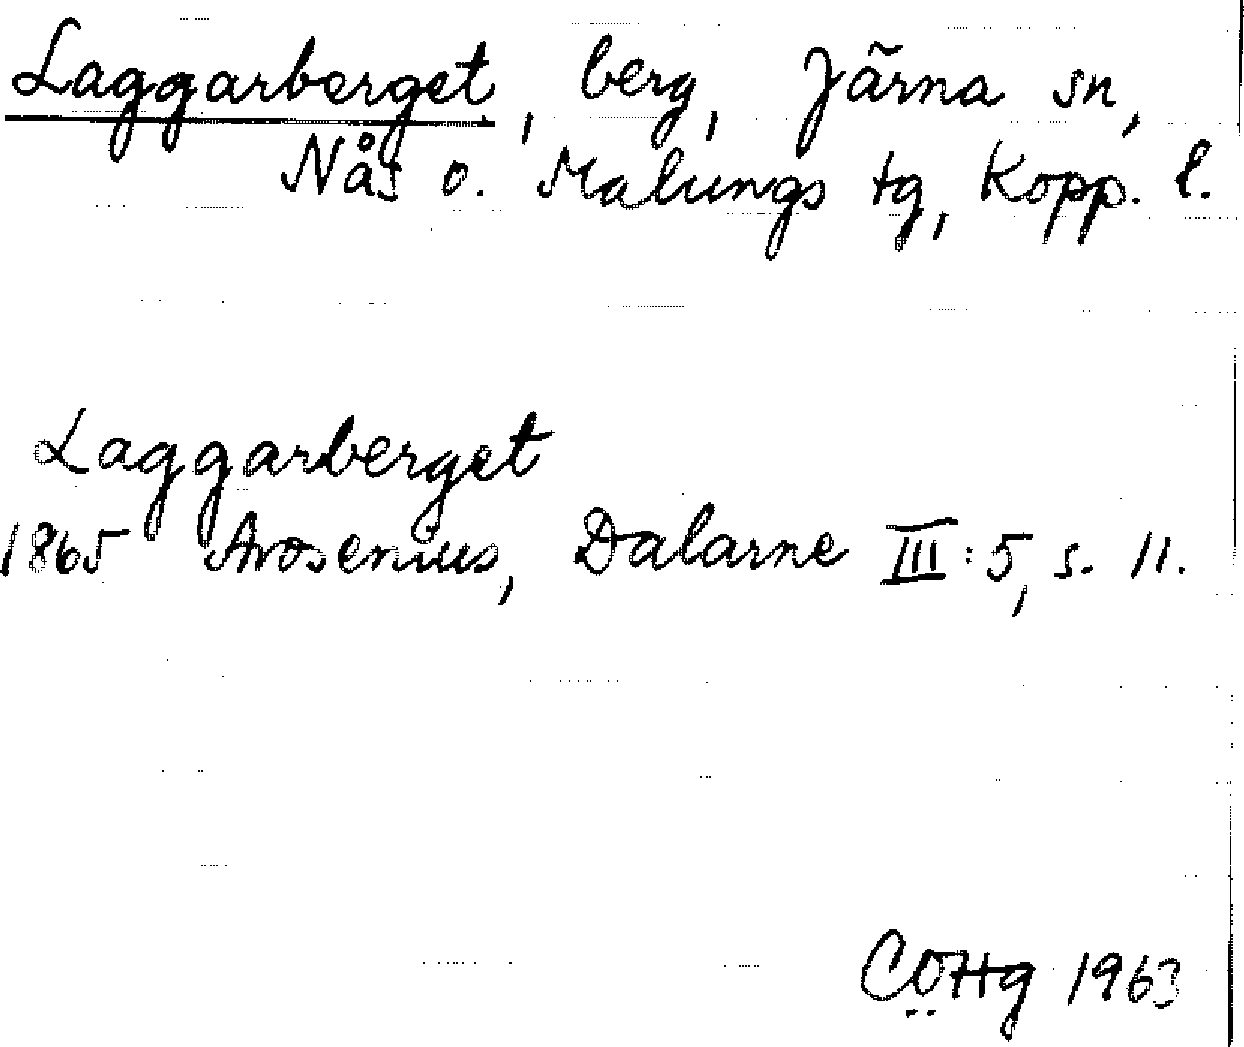 Laggarberget, berg, Järna sn,
Nås o. Malungs tg, Kopp. l.
Laggarberget
1865 Arosenius, Dalarne III:5, s. 11.
CÖHg 1963